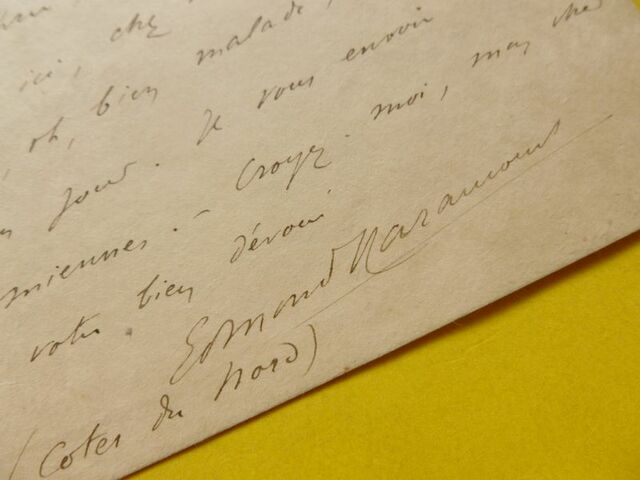 ici, chez
, oh, bien malade,
jour. Je vous envoie
miennes. - Croyez moi, mon cher
votre bien dévoué
Edmond Haraucourt
(Cotes du Nord)